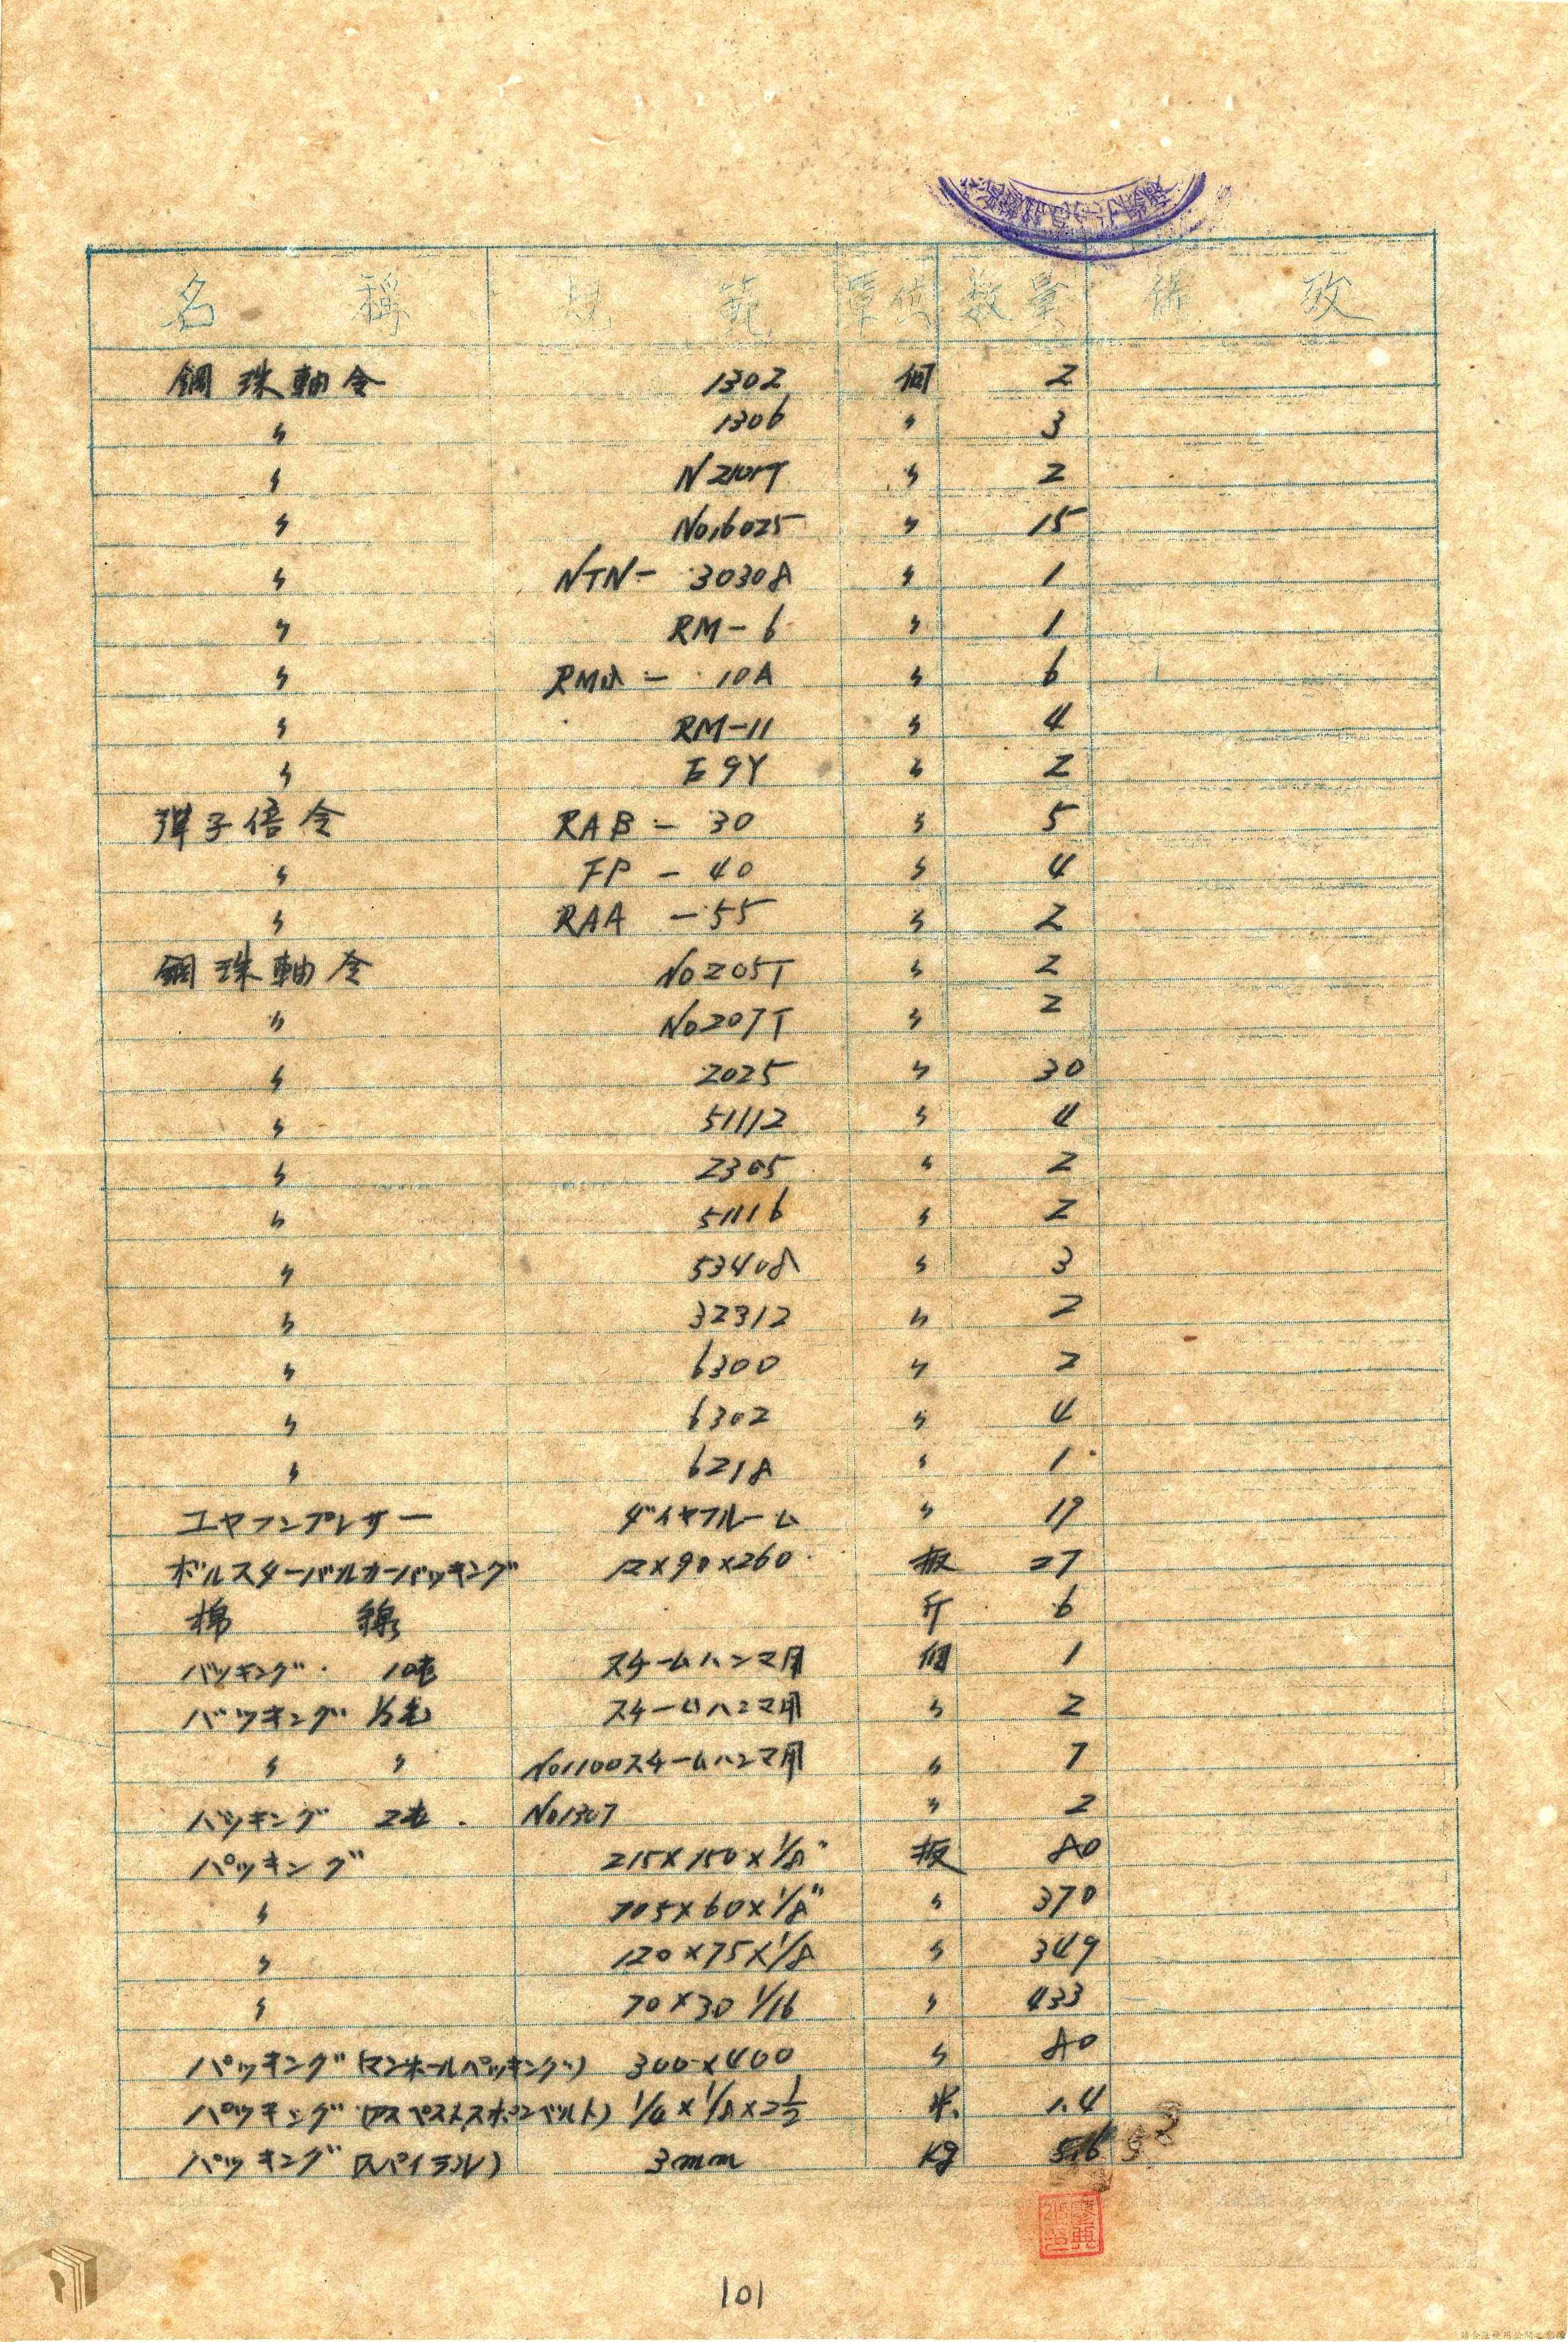 名 稱 規 範 單位 数量 備 攷
鋼珠軸令 1302 個 2
〃 1306 〃 3
〃 N2101T 〃 2
〃 No,6025 〃 15
〃 NTN- 30308 〃 1
〃 RM-6 〃 1
〃 - 10A 〃 6
〃 RM-11 〃 4
〃 E9Y 〃 2
彈子倍令 RAB - 30 〃 5
〃 FP - 40 〃 4
〃 RAA - 55 〃 2
鋼珠軸令 No205T 〃 2
〃 No207T 〃 2
〃 2025 〃 30
〃 51112 〃 4
〃 2305 〃 2
〃 51116 〃 2
〃 53408 〃 3
〃 32312 〃 2
〃 6300 〃 2
〃 6302 〃 4
〃 6218 〃 1
エヤコンプレサー ダイヤフルーム 〃 19
ボルスターバルカーパッキング 12×90×260 板 27
棉 線 斤 6
パッキング 10屯 スチームハンマ用 個 1
パッキング ½屯 スチームハンマ用 〃 2
〃 〃 No1100スチームハンマ用 〃 7
パッキング 2屯 No1307 〃 2
パッキング 215×150×1/8" 板 80
〃 705×60×1/8" 〃 370
〃 120×75×1/8 〃 349
〃 70×30 1/16 〃 433
パッキング(マンホールパッキング) 300×400 〃 80
パッキング 1/4×1/8×2½ 米 1.4
パッキング(スパイラル) 3mm kg 5.2
101